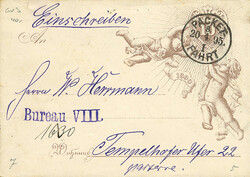 Einschreiben
An
PACKET-
20 95.
1
FAHRT
Herrn W. Herrmann
Bureau VIII.
Wohnung
Tempelhofer Ufer 22
parterre.